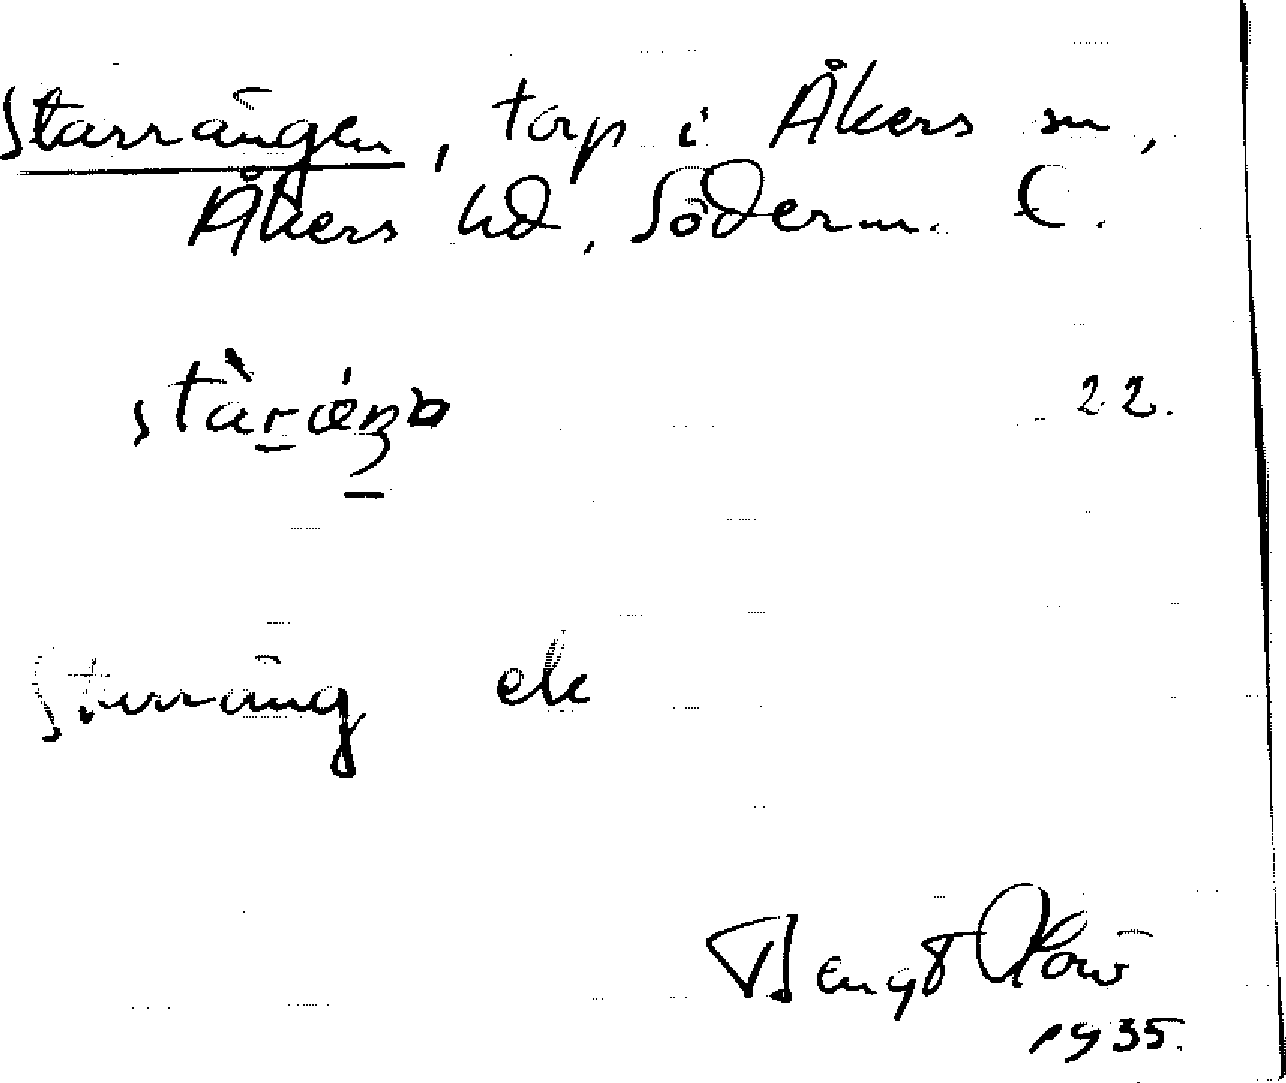 Starrängen, torp i Åkers sn,
Åkers hd, Söderm. C.
22.
Starräng ek
Bengt
1935.